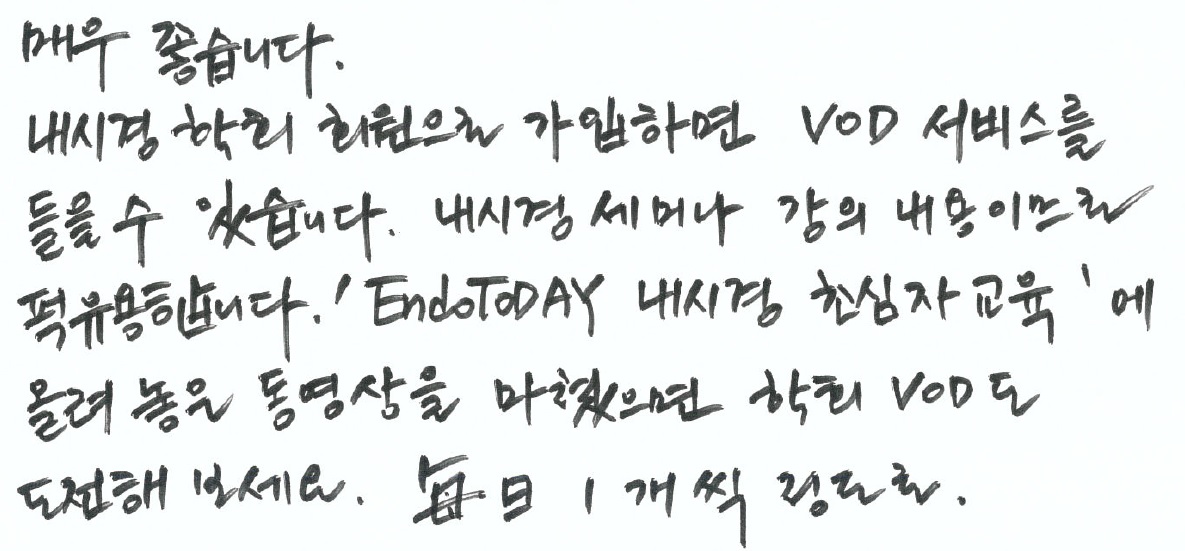 매우 좋습니다.
내시경 학회 회원으로 가입하면 VOD 서비스를
들을 수 있습니다. 내시경 세미나 강의 내용이므로
퍽 유용합니다. 'EndoTODAY 내시경 초심자 교육'에
올려 놓은 동영상을 마쳤으면 학회 VOD도
도전해 보세요. 每日 1개씩 정도로.